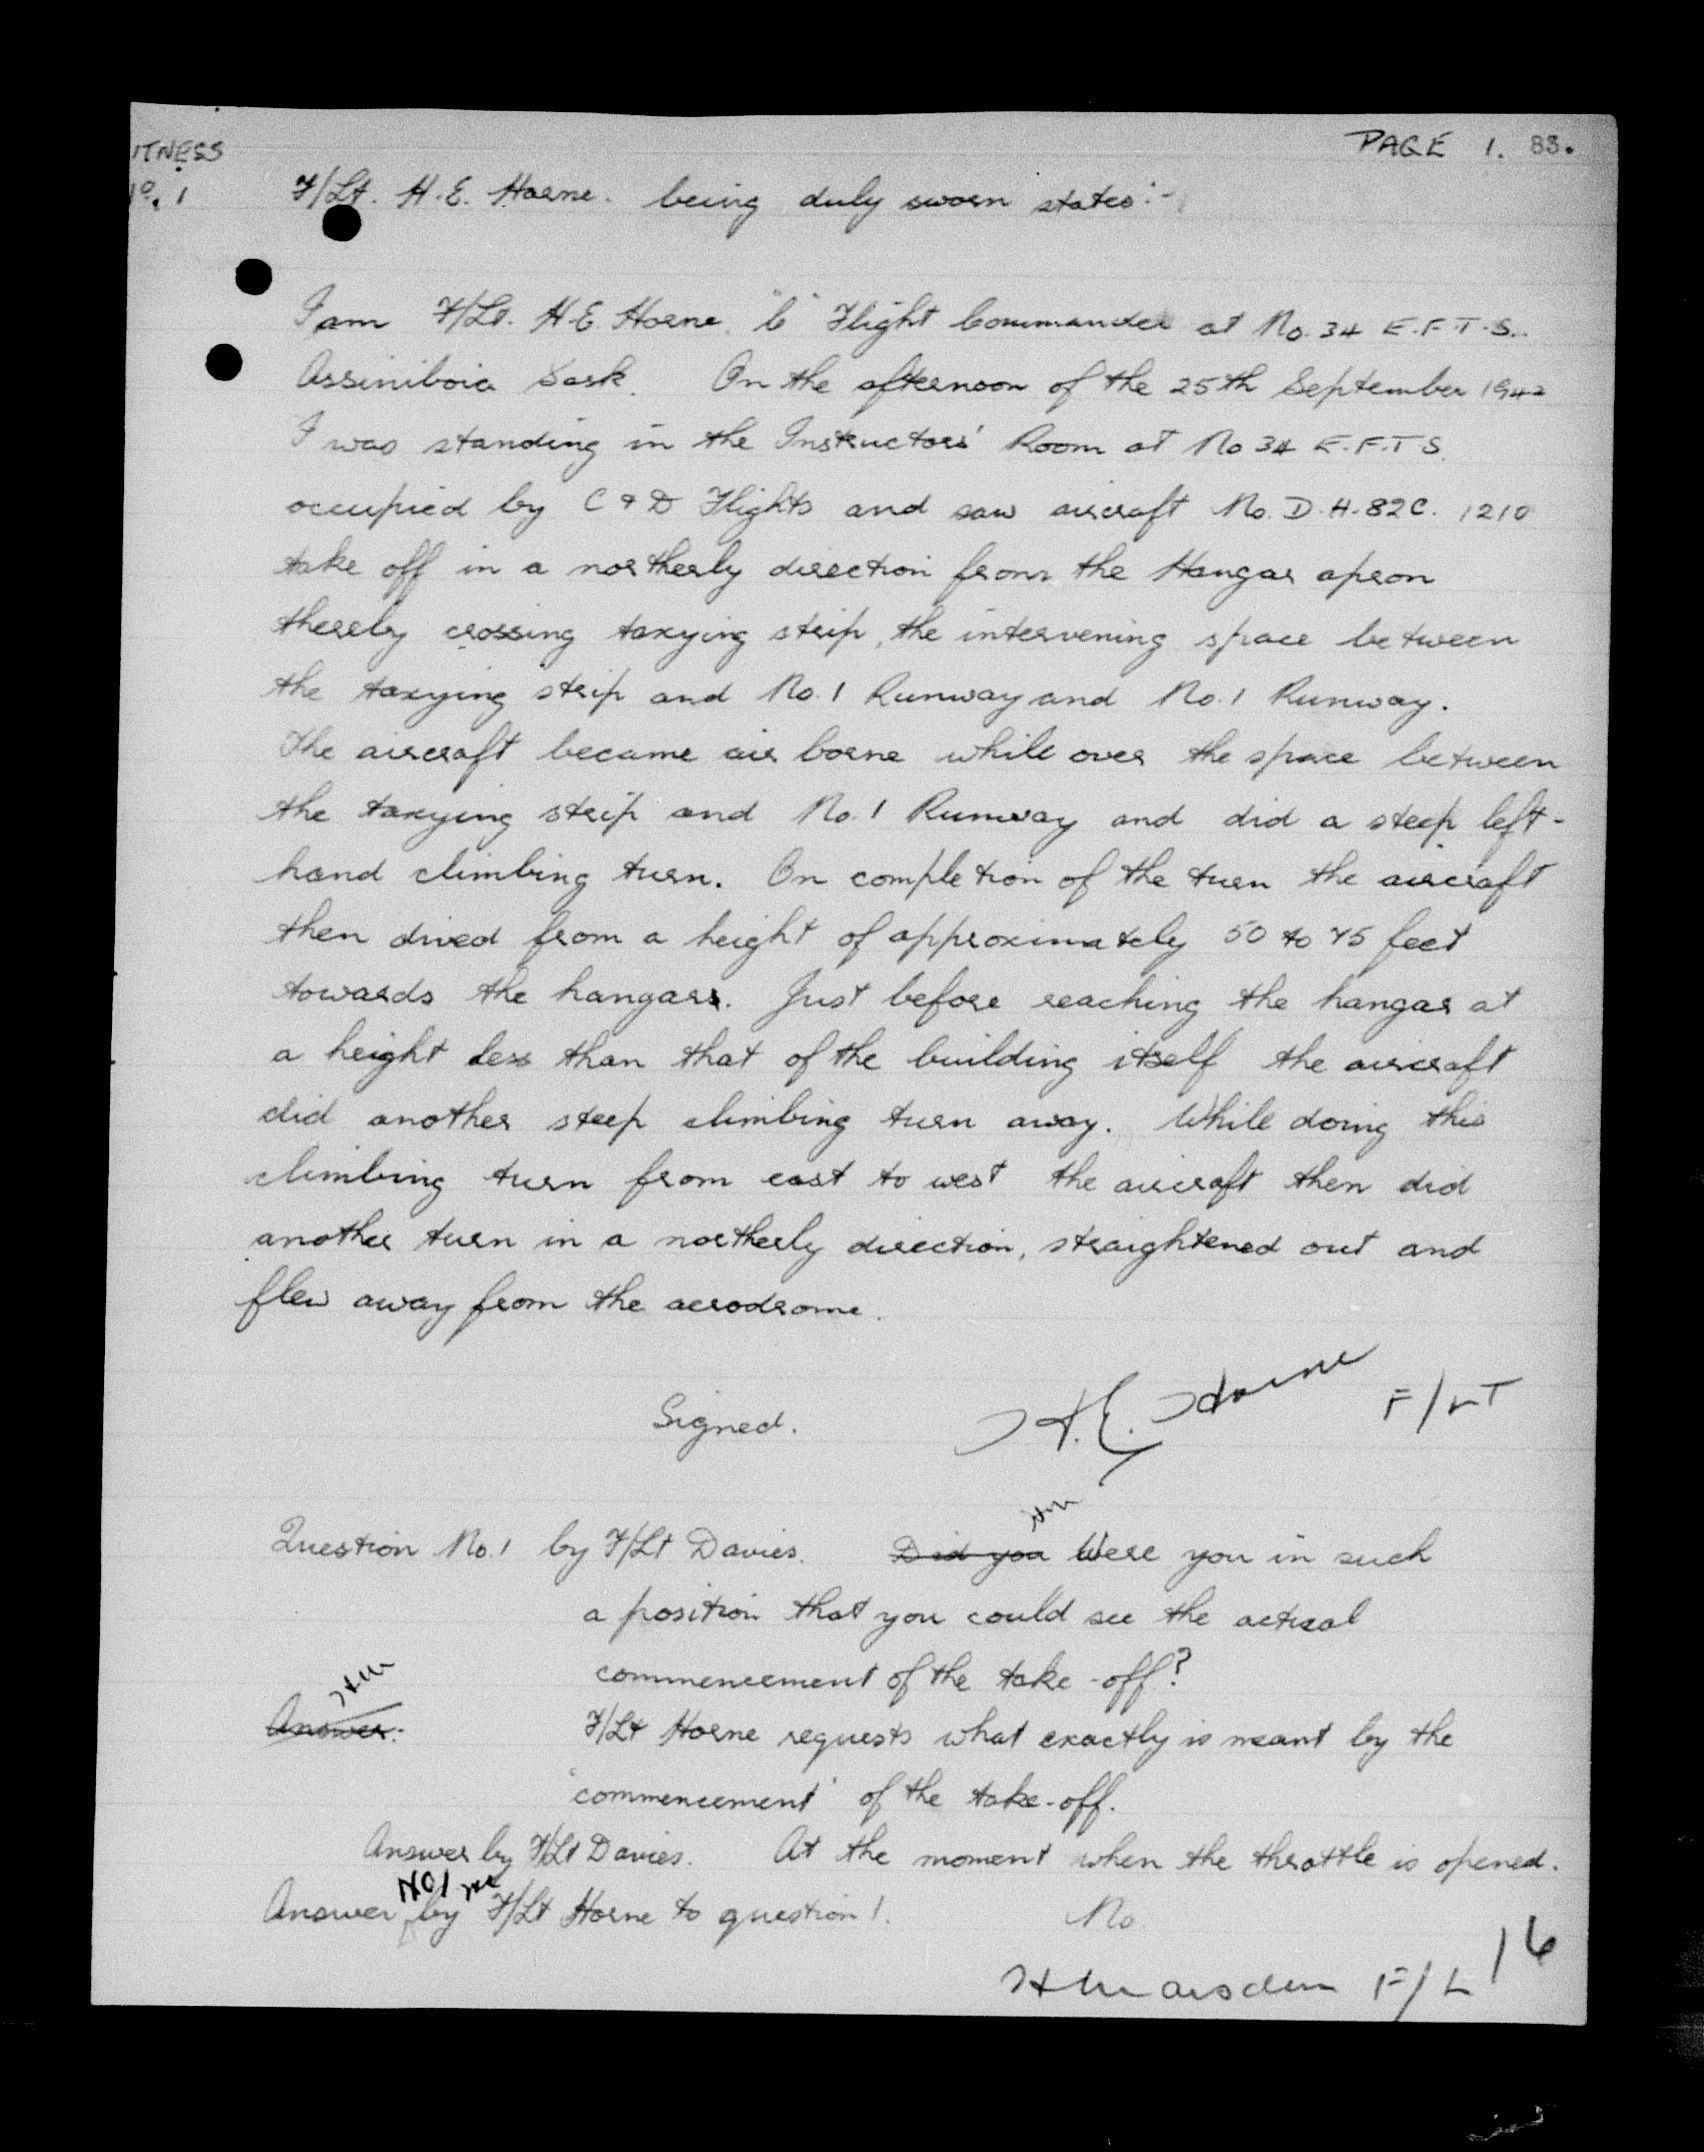 ITNESS
PAGE 1. 83.
No. 1
F/Lt. H.E. Horne. being duly sworn states:-
I am F/Lt. H.E. Horne. "C" Flight Commander at No. 34 E.F.T.S.
Assiniboia Sask. On the afternoon of the 25th September 1942
I was standing in the Instructors' Room at No 34 E.F.T.S.
occupied by C & D Flights and saw aircraft No. D.H.82C. 1210
take off in a northerly direction from the Hangar apron
thereby crossing taxying strip, the intervening space between
the taxying strip and No.1 Runway and No.1 Runway.
The aircraft became air borne while over the space between
the taxying strip and No.1 Runway and did a steep left-
hand climbing turn. On completion of the turn the aircraft
then dived from a height of approximately 50 to 75 feet
towards the hangars. Just before reaching the hangar at
a height less than that of the building itself the aircraft
did another steep climbing turn away. While doing this
climbing turn from east to west the aircraft then did
another turn in a northerly direction, straightened out and
flew away from the aerodrome.
Signed. H.E. Horne F/LT
HM
Question No.1 by F/Lt Davies. Did you Were you in such
a position that you could see the actual
commencement of the take-off?
HM
Answer: F/Lt Horne requests what exactly is meant by the
'commencement' of the take-off.
Answer by F/Lt Davies. At the moment when the throttle is opened.
NO1
Answer by F/Lt Horne to question 1. No.
16
HMarsden F/L